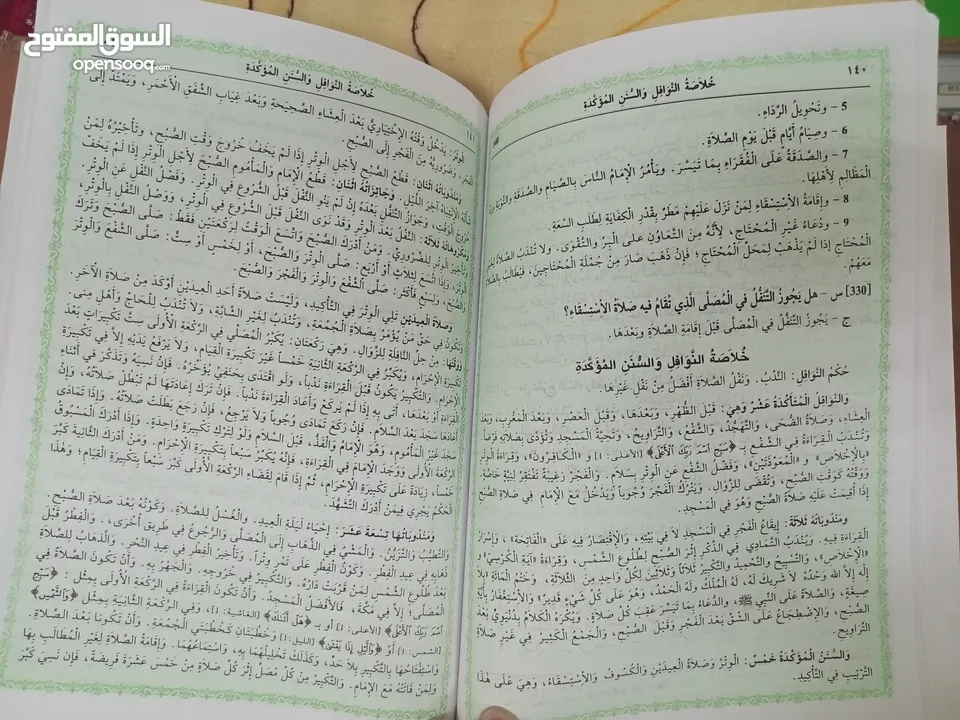 السوق المفتوح
opensooq.com
١٤٠
خُلاَصَةُ النَّوَافِلِ وَالسُّنَنِ المُؤَكَّدَةِ
5 - وَتَحْوِيلُ الرِّدَاءِ.
6 - وصِيَامُ أَيَّامٍ قَبْلَ يَوْمِ الصَّلاَةِ.
7 - وَالصَّدَقَةُ عَلَى الْفُقَرَاءِ بِمَا تَيَسَّرَ. وَيَأْمُرُ الإِمَامُ النَّاسَ بِالصِّيَامِ وَالصَّدَقَةِ وَالتَّوْبَةِ وَرَدِّ
المَظَالِمِ لأَهْلِهَا.
8 - وإِقَامَةُ الاسْتِسْقَاءِ لِمَنْ نَزَلَ عَلَيْهِمْ مَطَرٌ بِقَدْرِ الْكِفَايَةِ لِطَلَبِ السَّعَةِ.
9 - ودُعَاءُ غَيْرِ الْمُحْتَاجِ، لِأَنَّهُ مِنَ التَّعَاوُنِ عَلَى الْبِرِّ وَالتَّقْوَى. وَلاَ تُنْدَبُ الصَّلاَةُ لِغَيْرِ
المُحْتَاجِ إِذَا لَمْ يَذْهَبْ لِمَحَلِّ الْمُحْتَاجِ؛ فَإِنْ ذَهَبَ صَارَ مِنْ جُمْلَةِ الْمُحْتَاجِينَ، فَيُطَالَبُ بِالصَّلاَةِ
مَعَهُمْ.
[330] س - هل يَجُوزُ التَّنَفُّلُ في الْمُصَلَّى الَّذِي تُقَامُ فيه صَلاَةُ الاسْتِسْقَاءِ؟
ج - يَجُوزُ التَّنَفُّلُ في الْمُصَلَّى قَبْلَ إِقَامَةِ الصَّلاَةِ وَبَعْدَهَا.
خُلاَصَةُ النَّوَافِلِ وَالسُّنَنِ المُؤَكَّدَةِ
حُكْمُ النَّوَافِلِ: النَّدْبُ. وَنَفْلُ الصَّلاَةِ أَفْضَلُ مِنْ نَفْلِ غَيْرِهَا.
والنَّوَافِلُ الْمُتَأَكَّدَةُ عَشْرٌ وَهِيَ: قَبْلَ الظُّهْرِ، وَبَعْدَهَا، وَقَبْلَ الْعَصْرِ، وَبَعْدَ الْمَغْرِبِ، وَبَعْدَ
الْعِشَاءِ، وَصَلاَةُ الضُّحَى، وَالتَّهَجُّدُ، وَالشَّفْعُ، وَالتَّرَاوِيحُ، وَتَحِيَّةُ الْمَسْجِدِ وَتُؤَدَّى بِصَلاَةِ فَرْضٍ.
وَتُنْدَبُ الْقِرَاءَةُ فِي الشَّفْعِ بِـ ﴿سَبِّحِ اسْمَ رَبِّكَ الأَعْلَى﴾ [الأعلى: ١]، وَ«الْكَافِرُونَ»، وَفِي الْوِتْرِ
بِـ«الإِخْلاَصِ» وَ«الْمُعَوِّذَتَيْنِ»، وَفَصْلُ الشَّفْعِ عَنِ الْوِتْرِ بِسَلاَمٍ. وَالْفَجْرُ رَغِيبَةٌ تَفْتَقِرُ لِنِيَّةٍ خَاصَّةٍ.
وَوَقْتُهُ كَوَقْتِ الصُّبْحِ، وَتُقْضَى لِلزَّوَالِ. وَيَتْرُكُ الْفَجْرَ وُجُوباً وَيَدْخُلُ مَعَ الإِمَامِ في صَلاَةِ الصُّبْحِ
إِذَا أُقِيمَتْ عَلَيْهِ صَلاَةُ الصُّبْحِ وَهُوَ فِي الْمَسْجِدِ.
وَمَنْدُوبَاتُهُ ثَلاَثَةٌ: إِيقَاعُ الْفَجْرِ فِي الْمَسْجِدِ لاَ فِي بَيْتِهِ، وَالاِقْتِصَارُ فِيهِ عَلَى «الْفَاتِحَةِ»، وَإِسْرَارُ
الْقِرَاءَةِ فِيهِ. وَيُنْدَبُ التَّمَادِي فِي الذِّكْرِ إِثْرَ الصُّبْحِ لِطُلُوعِ الشَّمْسِ، وَقِرَاءَةُ «آيَةَ الْكُرْسِيِّ» وَ
«الإِخْلاَصِ»، وَالتَّسْبِيحُ وَالتَّحْمِيدُ وَالتَّكْبِيرُ ثَلاَثاً وَثَلاَثِينَ لِكُلِّ وَاحِدٍ مِنَ الثَّلاَثَةِ، وَخَتْمُ الْمِائَةِ بِـ«لا
إِلَهَ إِلاَّ اللهُ وَحْدَهُ لاَ شَرِيكَ لَهُ، لَهُ الْمُلْكُ، وَلَهُ الْحَمْدُ، وَهُوَ عَلَى كُلِّ شَيْءٍ قَدِيرٌ» وَالاِسْتِغْفَارُ بِأَيَّةِ
صِيغَةٍ، وَالصَّلاَةُ عَلَى النَّبِيِّ ﷺ، وَالدُّعَاءُ بِمَا تَيَسَّرَ عَقِبَ كُلِّ صَلاَةٍ. وَيُكْرَهُ الْكَلاَمُ بِدُنْيَوِيٍّ بَعْدَ
الصُّبْحِ، وَالاِضْطِجَاعُ عَلَى الشِّقِّ بَعْدَ الْفَجْرِ وَقَبْلَ الصُّبْحِ، وَالْجَمْعُ الْكَثِيرُ فِي غَيْرِ صَلاَةِ
التَّرَاوِيحِ.
وَالسُّنَنُ الْمُؤَكَّدَةُ خَمْسٌ: الْوِتْرُ وَصَلاَةُ الْعِيدَيْنِ وَالْكُسُوفُ وَالاِسْتِسْقَاءُ، وَهِيَ عَلَى هَذَا
التَّرْتِيبِ في التَّأْكِيدِ.
١٤١
خُلاَصَةُ النَّوَافِلِ وَالسُّنَنِ المُؤَكَّدَةِ
الْوِتْرُ: يَدْخُلُ وَقْتُهُ الاِخْتِيَارِيُّ بَعْدَ الْعِشَاءِ الصَّحِيحَةِ وَبَعْدَ غِيَابِ الشَّفَقِ الأَحْمَرِ، وَيَمْتَدُّ إِلَى
الْفَجْرِ. وَضَرُورِيُّهُ مِنَ الْفَجْرِ إِلَى الصُّبْحِ.
وَمَنْدُوبَاتُهُ اثْنَانِ: قَطْعُ الصُّبْحِ لِأَجْلِ الْوِتْرِ إِذَا لَمْ يَخَفْ خُرُوجَ وَقْتِ الصُّبْحِ، وَتَأْخِيرُهُ لِمَنْ
شَأْنُهُ الاِنْتِبَاهُ آخِرَ اللَّيْلِ. وَجَائِزَاتُهُ اثْنَانِ: قَطْعُ الإِمَامِ وَالْمَأْمُومِ الصُّبْحَ لِأَجْلِ الْوِتْرِ إِذَا لَمْ يَخَفْ
خُرُوجَ الْوَقْتِ، وَجَوَازُ التَّنَفُّلِ بَعْدَهُ إِنْ لَمْ يَنْوِ النَّفْلَ قَبْلَ الشُّرُوعِ فِي الْوِتْرِ. وَفَصْلُ النَّفْلِ عَنِ الْوِتْرِ.
وَمَكْرُوهَاتُهُ ثَلاَثَةٌ: النَّفْلُ بَعْدَ الْوِتْرِ وَقَدْ نَوَى النَّفْلَ قَبْلَ الشُّرُوعِ فِي الْوِتْرِ، وَوَصْلُ النَّفْلِ بِالْوِتْرِ،
وَتَأْخِيرُ الْوِتْرِ لِلضَّرُورِيِّ. وَمَنْ أَدْرَكَ الصُّبْحَ وَاتَّسَعَ الْوَقْتُ لِرَكْعَتَيْنِ فَقَطْ: صَلَّى الصُّبْحَ وَتَرَكَ
الْوِتْرَ. وَإِذَا اتَّسَعَ لِثَلاَثٍ أَوْ أَرْبَعٍ: صَلَّى الْوِتْرَ وَالصُّبْحَ، أَوْ لِخَمْسٍ أَوْ سِتٍّ: صَلَّى الشَّفْعَ وَالْوِتْرَ
وَالصُّبْحَ، وَلِسَبْعٍ فَأَكْثَرَ: صَلَّى الشَّفْعَ وَالْوِتْرَ وَالْفَجْرَ وَالصُّبْحَ.
وَصَلاَةُ الْعِيدَيْنِ تَلِي الْوِتْرَ فِي التَّأْكِيدِ، وَلَيْسَتْ صَلاَةُ أَحَدِ الْعِيدَيْنِ أَوْكَدَ مِنْ صَلاَةِ الآخَرِ.
وَتَكُونُ فِي حَقِّ مَنْ يُؤْمَرُ بِصَلاَةِ الْجُمُعَةِ، وَتُنْدَبُ لِغَيْرِ الشَّابَّةِ، وَلاَ تُنْدَبُ لِلْحَاجِّ وَلأَهْلِ مِنى.
وَوَقْتُهَا: مِنْ حِلِّ النَّافِلَةِ لِلزَّوَالِ. وَهِيَ رَكْعَتَانِ: يُكَبِّرُ الْمُصَلِّي فِي الرَّكْعَةِ الأُولَى سِتَّ تَكْبِيرَاتٍ بَعْدَ
تَكْبِيرَةِ الإِحْرَامِ، وَيُكَبِّرُ فِي الرَّكْعَةِ الثَّانِيَةِ خَمْساً غَيْرَ تَكْبِيرَةِ الْقِيَامِ، وَلاَ يَرْفَعُ يَدَيْهِ إِلاَّ فِي تَكْبِيرَةِ
الإِحْرَامِ. وَالتَّكْبِيرُ يَكُونُ قَبْلَ الْقِرَاءَةِ نَدْباً، وَلَوِ اقْتَدَى بِحَنَفِيٍّ يُؤَخِّرُهُ. فَإِنْ نَسِيَهُ وَتَذَكَّرَ فِي أَثْنَاءِ
الْقِرَاءَةِ أَوْ بَعْدَهَا، أَتَى بِهِ إِذَا لَمْ يَرْكَعْ وَأَعَادَ الْقِرَاءَةَ نَدْباً. فَإِنْ تَرَكَ إِعَادَتَهَا لَمْ تَبْطُلْ صَلاَتُهُ، وَإِنْ
أَعَادَهَا سَجَدَ بَعْدَ السَّلاَمِ. فَإِنْ رَكَعَ تَمَادَى وُجُوباً وَلاَ يَرْجِعُ، فَإِنْ رَجَعَ بَطَلَتْ صَلاَتُهُ.
سَجَدَ غَيْرُ الْمَأْمُومِ، وَهُوَ الإِمَامُ وَالْفَذُّ، قَبْلَ السَّلاَمِ وَلَوْ لِتَرْكِ تَكْبِيرَةٍ وَاحِدَةٍ. وَإِذَا أَدْرَكَ الْمَسْبُوقُ
الرَّكْعَةَ الأُولَى وَوَجَدَ الإِمَامَ فِي الْقِرَاءَةِ، فَإِنَّهُ يُكَبِّرُ سَبْعاً بِتَكْبِيرَةِ الإِحْرَامِ. وَمَنْ أَدْرَكَ الثَّانِيَةَ كَبَّرَ
خَمْساً، زِيَادَةً عَلَى تَكْبِيرَةِ الإِحْرَامِ، ثُمَّ إِذَا قَامَ لِقَضَاءِ الرَّكْعَةِ الأُولَى كَبَّرَ سَبْعاً بِتَكْبِيرَةِ الْقِيَامِ؛ وَهَذَا
الْحُكْمُ يَجْرِي فِيمَنْ أَدْرَكَ التَّشَهُّدَ.
وَمَنْدُوبَاتُهَا تِسْعَةَ عَشَرَ: إِحْيَاءُ لَيْلَةِ الْعِيدِ. وَالْغُسْلُ لِلصَّلاَةِ. وَكَوْنُهُ بَعْدَ صَلاَةِ الصُّبْحِ.
وَالتَّطَيُّبُ وَالتَّزَيُّنُ. وَالْمَشْيُ فِي الذَّهَابِ إِلَى الْمُصَلَّى وَالرُّجُوعُ فِي طَرِيقٍ أُخْرَى. وَالْفِطْرُ قَبْلَ
ذَهَابِهِ فِي عِيدِ الْفِطْرِ. وَكَوْنُ الْفِطْرِ عَلَى تَمْرٍ وِتْراً. وَتَأْخِيرُ الْفِطْرِ فِي عِيدِ النَّحْرِ. وَالذَّهَابُ لِلصَّلاَةِ
بَعْدَ طُلُوعِ الشَّمْسِ لِمَنْ قَرُبَتْ دَارُهُ. وَالتَّكْبِيرُ فِي خُرُوجِهِ. وَالْجَهْرُ بِهِ. وَأَنْ تَكُونَ الصَّلاَةُ فِي
الْمُصَلَّى؛ إِلاَّ فِي مَكَّةَ، فَالأَفْضَلُ الْمَسْجِدُ. وَأَنْ تَكُونَ الْقِرَاءَةُ فِي الرَّكْعَةِ الأُولَى بِمِثْلِ: ﴿سَبِّحِ
اسْمَ رَبِّكَ الأَعْلَى﴾ [الأعلى: ١] أو بـ ﴿هَلْ أَتَاكَ﴾ [الغاشية: ١]، وَفِي الرَّكْعَةِ الثَّانِيَةِ بِمِثْلِ ﴿وَالشَّمْسِ﴾
[الشمس: ١] أَوْ ﴿وَاللَّيْلِ إِذَا يَغْشَى﴾ [الليل: ١] وَخُطْبَتَانِ كَخُطْبَتَيِ الْجُمُعَةِ. وَأَنْ تَكُونَا بَعْدَ الصَّلاَةِ.
وَاسْتِفْتَاحُهَا بِالتَّكْبِيرِ بِلاَ حَدٍّ، وَكَذَلِكَ تَخْلِيلُهُمَا بِهِ، وَاسْتِمَاعُهُمَا. وَإِقَامَةُ الصَّلاَةِ لِغَيْرِ الْمُطَالَبِ بِهَا
وَلِمَنْ فَاتَتْهُ مَعَ الإِمَامِ. وَالتَّكْبِيرُ مِنْ كُلِّ مُصَلٍّ إِثْرَ كُلِّ صَلاَةٍ مِنْ خَمْسَ عَشْرَةَ فَرِيضَةً، فَإِنْ نَسِيَ كَبَّرَ